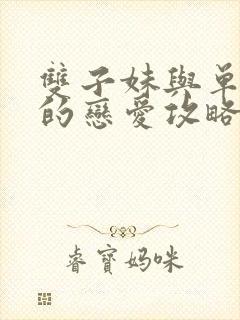 雙子妹與單
的戀愛攻略
睿寶媽咪